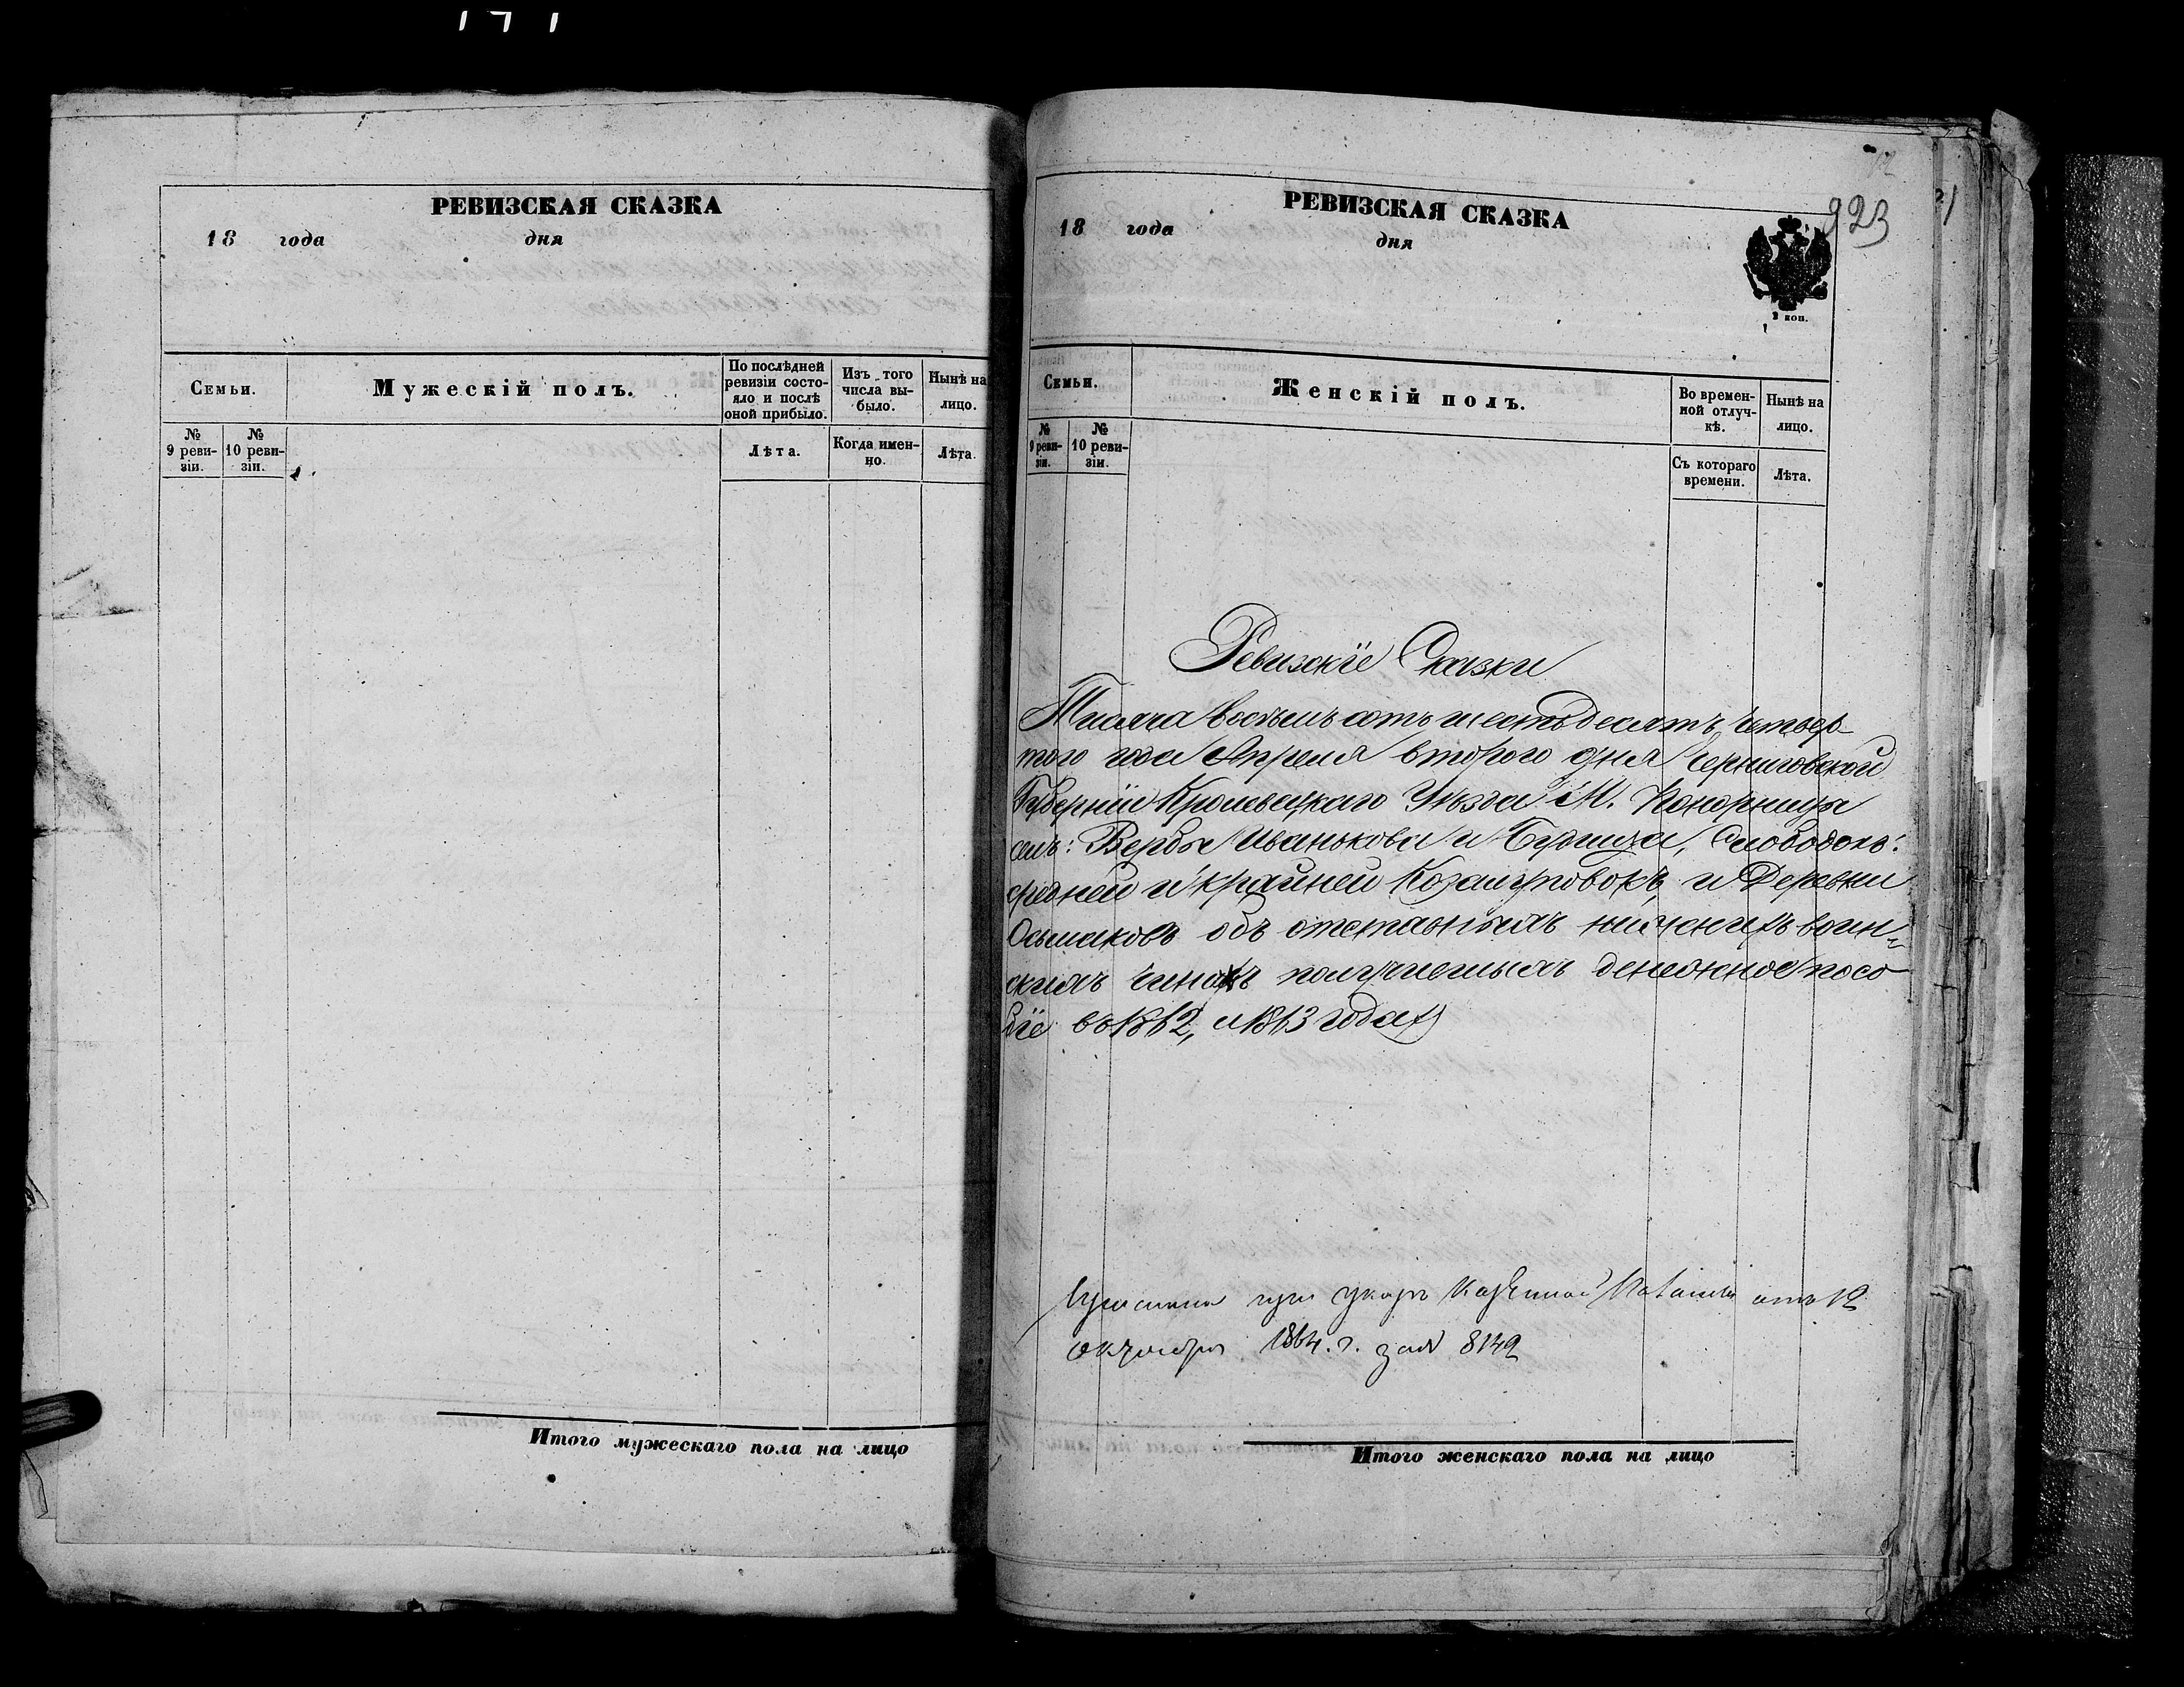 РЕВИЗСКАЯ СКАЗКА
18 года дня
Семьи.
Мужескій полъ.
По послѣдней
ревизіи состо-
яло и послѣ
оной прибыло.
Изъ того
числа вы-
было.
Нынѣ на
лицо.
№
9 реви-
зіи.
№
10 реви-
зіи.
Лѣта.
Когда имен-
но.
Лѣта.
Итого мужескаго пола на лицо
923
РЕВИЗСКАЯ СКАЗКА
18 года дня
Семьи.
Женскій полъ.
Во времен-
ной отлуч-
кѣ.
Нынѣ на
лицо.
№
9 реви-
зіи.
№
10 реви-
зіи.
Съ котораго
времени.
Лѣта.
Ревизскіе Сказки
Тисяча восемь сотъ шестьдесятъ четвер-
того года Апреля второго дня Черниговской
Губерніи Кролевецкаго Уѣзда М. Понорница
селъ: Вербы Иванькова и Слободокъ:
средней и крайней и Деревни
Осьмаковъ объ отставныхъ нижнихъ воин-
скихъ чинахъ денежное посо
біе въ 1862, и 1863 годах
при указѣ Казенной Палаты отъ 12
Октября 1864. г. за № 8142
Итого женскаго пола на лицо